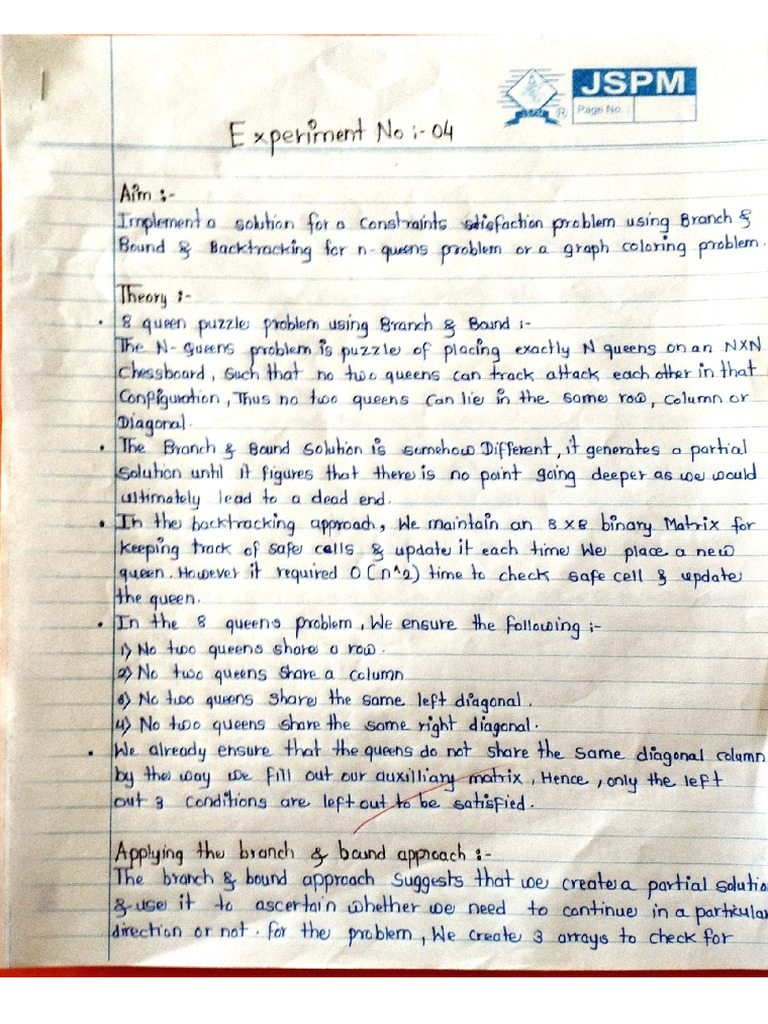 JSPM
Page No. :
Experiment No :- 04
Aim :-
Implement a solution for a constraints satisfaction problem using Branch &
Bound & Backtracking for n-queens problem or a graph coloring problem.
Theory :-
• 8 queen puzzle problem using Branch & Bound :-
The N-Queens problem is puzzle of placing exactly N queens on an NXN
chessboard, such that no two queens can track attack each other in that
Configuration, Thus no two queens can lie in the same row, column or
Diagonal.
• The Branch & Bound solution is somehow Different, it generates a partial
solution until it figures that there is no point going deeper as we would
ultimately lead to a dead end.
• In the backtracking approach, We maintain an 8 x 8 binary Matrix for
keeping track of safe cells & update it each time We place a new
queen. However it required O(n^2) time to check safe cell & update
the queen.
• In the 8 queens problem, We ensure the following :-
1) No two queens share a row.
2) No two queens share a column
3) No two queens share the same left diagonal.
4) No two queens share the same right diagonal.
• We already ensure that the queens do not share the same diagonal column
by the way we fill out our auxilliary matrix, Hence, only the left
out 3 conditions are left out to be satisfied.
Applying the branch & bound approach :-
The branch & bound approach suggests that we create a partial solutio
& use it to ascertain whether we need to continue in a particular
direction or not. for the problem, We create 3 arrays to check for